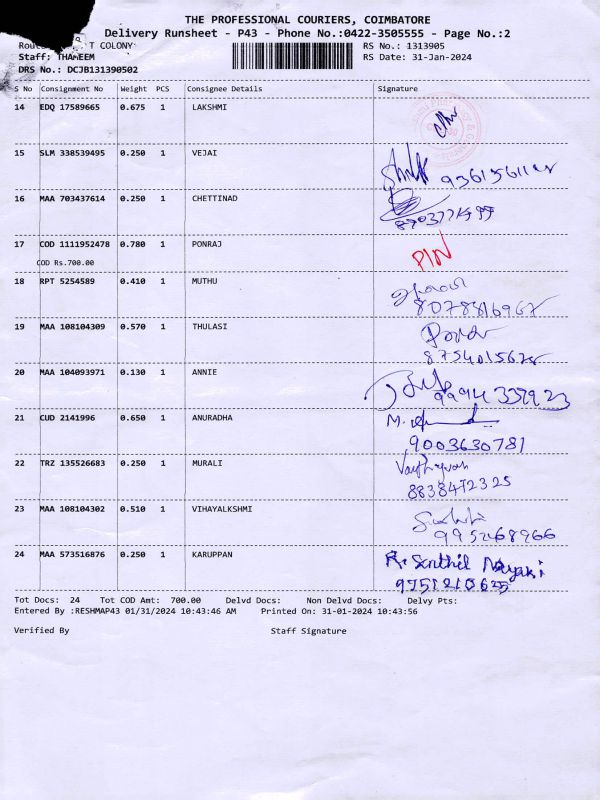 THE PROFESSIONAL COURIERS, COIMBATORE
Delivery Runsheet - P43 - Phone No.:0422-3505555 - Page No.:2
T COLONY RS No.: 1313905
Staff: THAHEEM RS Date: 31-Jan-2024
DRS No.: DCJB131390502
S No Consignment No Weight PCS Consignee Details Signature
14 EDQ 17589665 0.675 1 LAKSHMI
15 SLM 338539495 0.250 1 VEJAI
16 MAA 703437614 0.250 1 CHETTINAD
17 COD 1111952478 0.780 1 PONRAJ PIN
COD Rs.700.00
18 RPT 5254589 0.410 1 MUTHU
8078816967
19 MAA 108104309 0.570 1 THULASI
20 MAA 104093971 0.130 1 ANNIE
21 CUD 2141996 0.650 1 ANURADHA M.
9003630781
22 TRZ 135526683 0.250 1 MURALI
8838472325
23 MAA 108104302 0.510 1 VIHAYALKSHMI
9952468966
24 MAA 573516876 0.250 1 KARUPPAN R. Senthil Nayaki
9751210625
Tot Docs: 24 Tot COD Amt: 700.00 Delvd Docs: Non Delvd Docs: Delvy Pts:
Entered By :RESHMAP43 01/31/2024 10:43:46 AM Printed On: 31-01-2024 10:43:56
Verified By Staff Signature